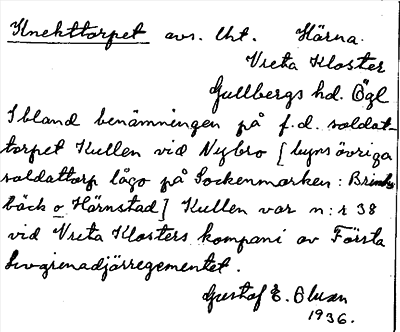 Knekttorpet avs. lht. Härna.
Vreta Kloster
Gullbergs hd. Ögl
Ibland benämningen på f.d. soldat-
torpet Kullen vid Nybro [byns övriga
soldattorp lågo på Sockenmarken: Brinke
bäck o Härnstad] Kullen var n:r 38
vid Vreta Klosters kompani av Första
Livgrenadjärregementet.
Gustaf E. Olsson
1936.